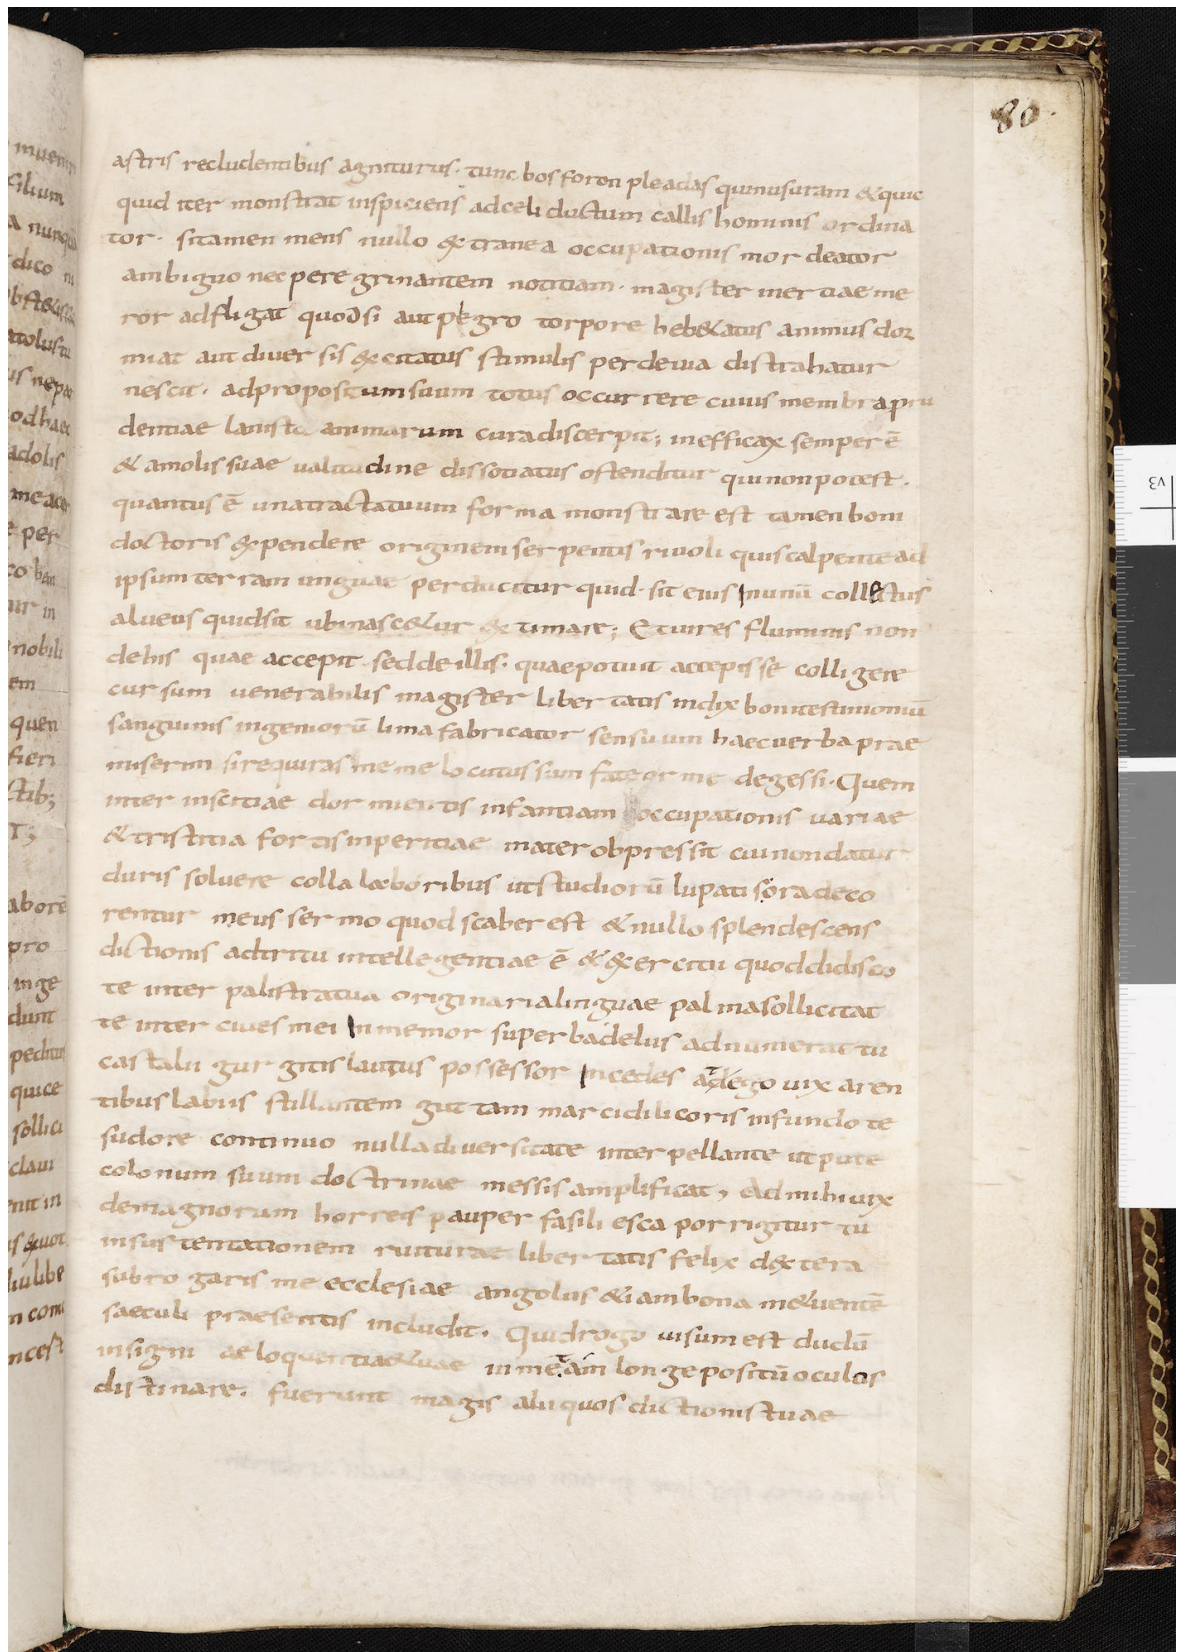 80.
astris recludentibus agniturus. tunc bosforon pleadas quinusuram & quic
quid iter monstrat inspiciens adceli ductum callis hominis ordina
tor. sitamen mens nullo extranea occupationis mordeator
ambiguo nec peregrinantem notitiam. magister inertiae me
ror adfligat quodsi aut pigro torpore heb&atus animus dor
miat aut diversis excitatus stimulis perdevia distrahatur
nescit. adpropositum suum totus occurrere cuius membra pru
dentiae lanista animarum cura discerpit; inefficax semper ē
& amolis suae valitudine dissotiatus ostenditur qui non potest.
quantus ē una tractatuum forma monstrare est tamen boni
doctoris expendere originem serpentis rivoli quiscalpente ad
ipsum terram unguae perducitur quid. sit eius inunū collectus
alveus quidsit ubi nasc&ur extimare; Et vires fluminis non
dehis quae accepit. sed de illis. quae potuit accepisse colligere
cursum venerabilis magister libertatis index boni testimoniū
sanguinis ingeniorū lima fabricator sensuum haec verba prae
miserim si requiras me me locutus sum fateor me degessi. Quem
inter inscitiae dormientis infantiam occupationis variae
& tristitia fortis inperitiae mater obpressit cui non datur
duris solvere colla laboribus ut studiorū lupatis ora deco
rentur meus sermo quod scaber est & nullo splendescens
dictionis adtritu intellegentiae ē & exercitu quod didisco
te inter palistratua originaria linguae palma sollicitat
te inter cives mei inmemor superba delus adnumerat tu
castalii gurgitis lautus possessor incedes adego vix aren
tibus labiis stillantem guttam marcidi licoris infundo te
sudore continuo nulla diversitate interpellante ut pute
colonum suum doctrinae messis amplificat, Ad mihi vix
demagnorum horreis pauper fasili esca porrigitur tu
insustentationem ruiturae libertatis felix dextera
subrogaris me ecclesiae angolus & iambona in&ventē
saeculi praesentis includit. Quid rogo visum est ductū
insigni aeloquentiae tuae in meam longe positū oculos
distinare. fuerunt magis alii quos dictionis tuae